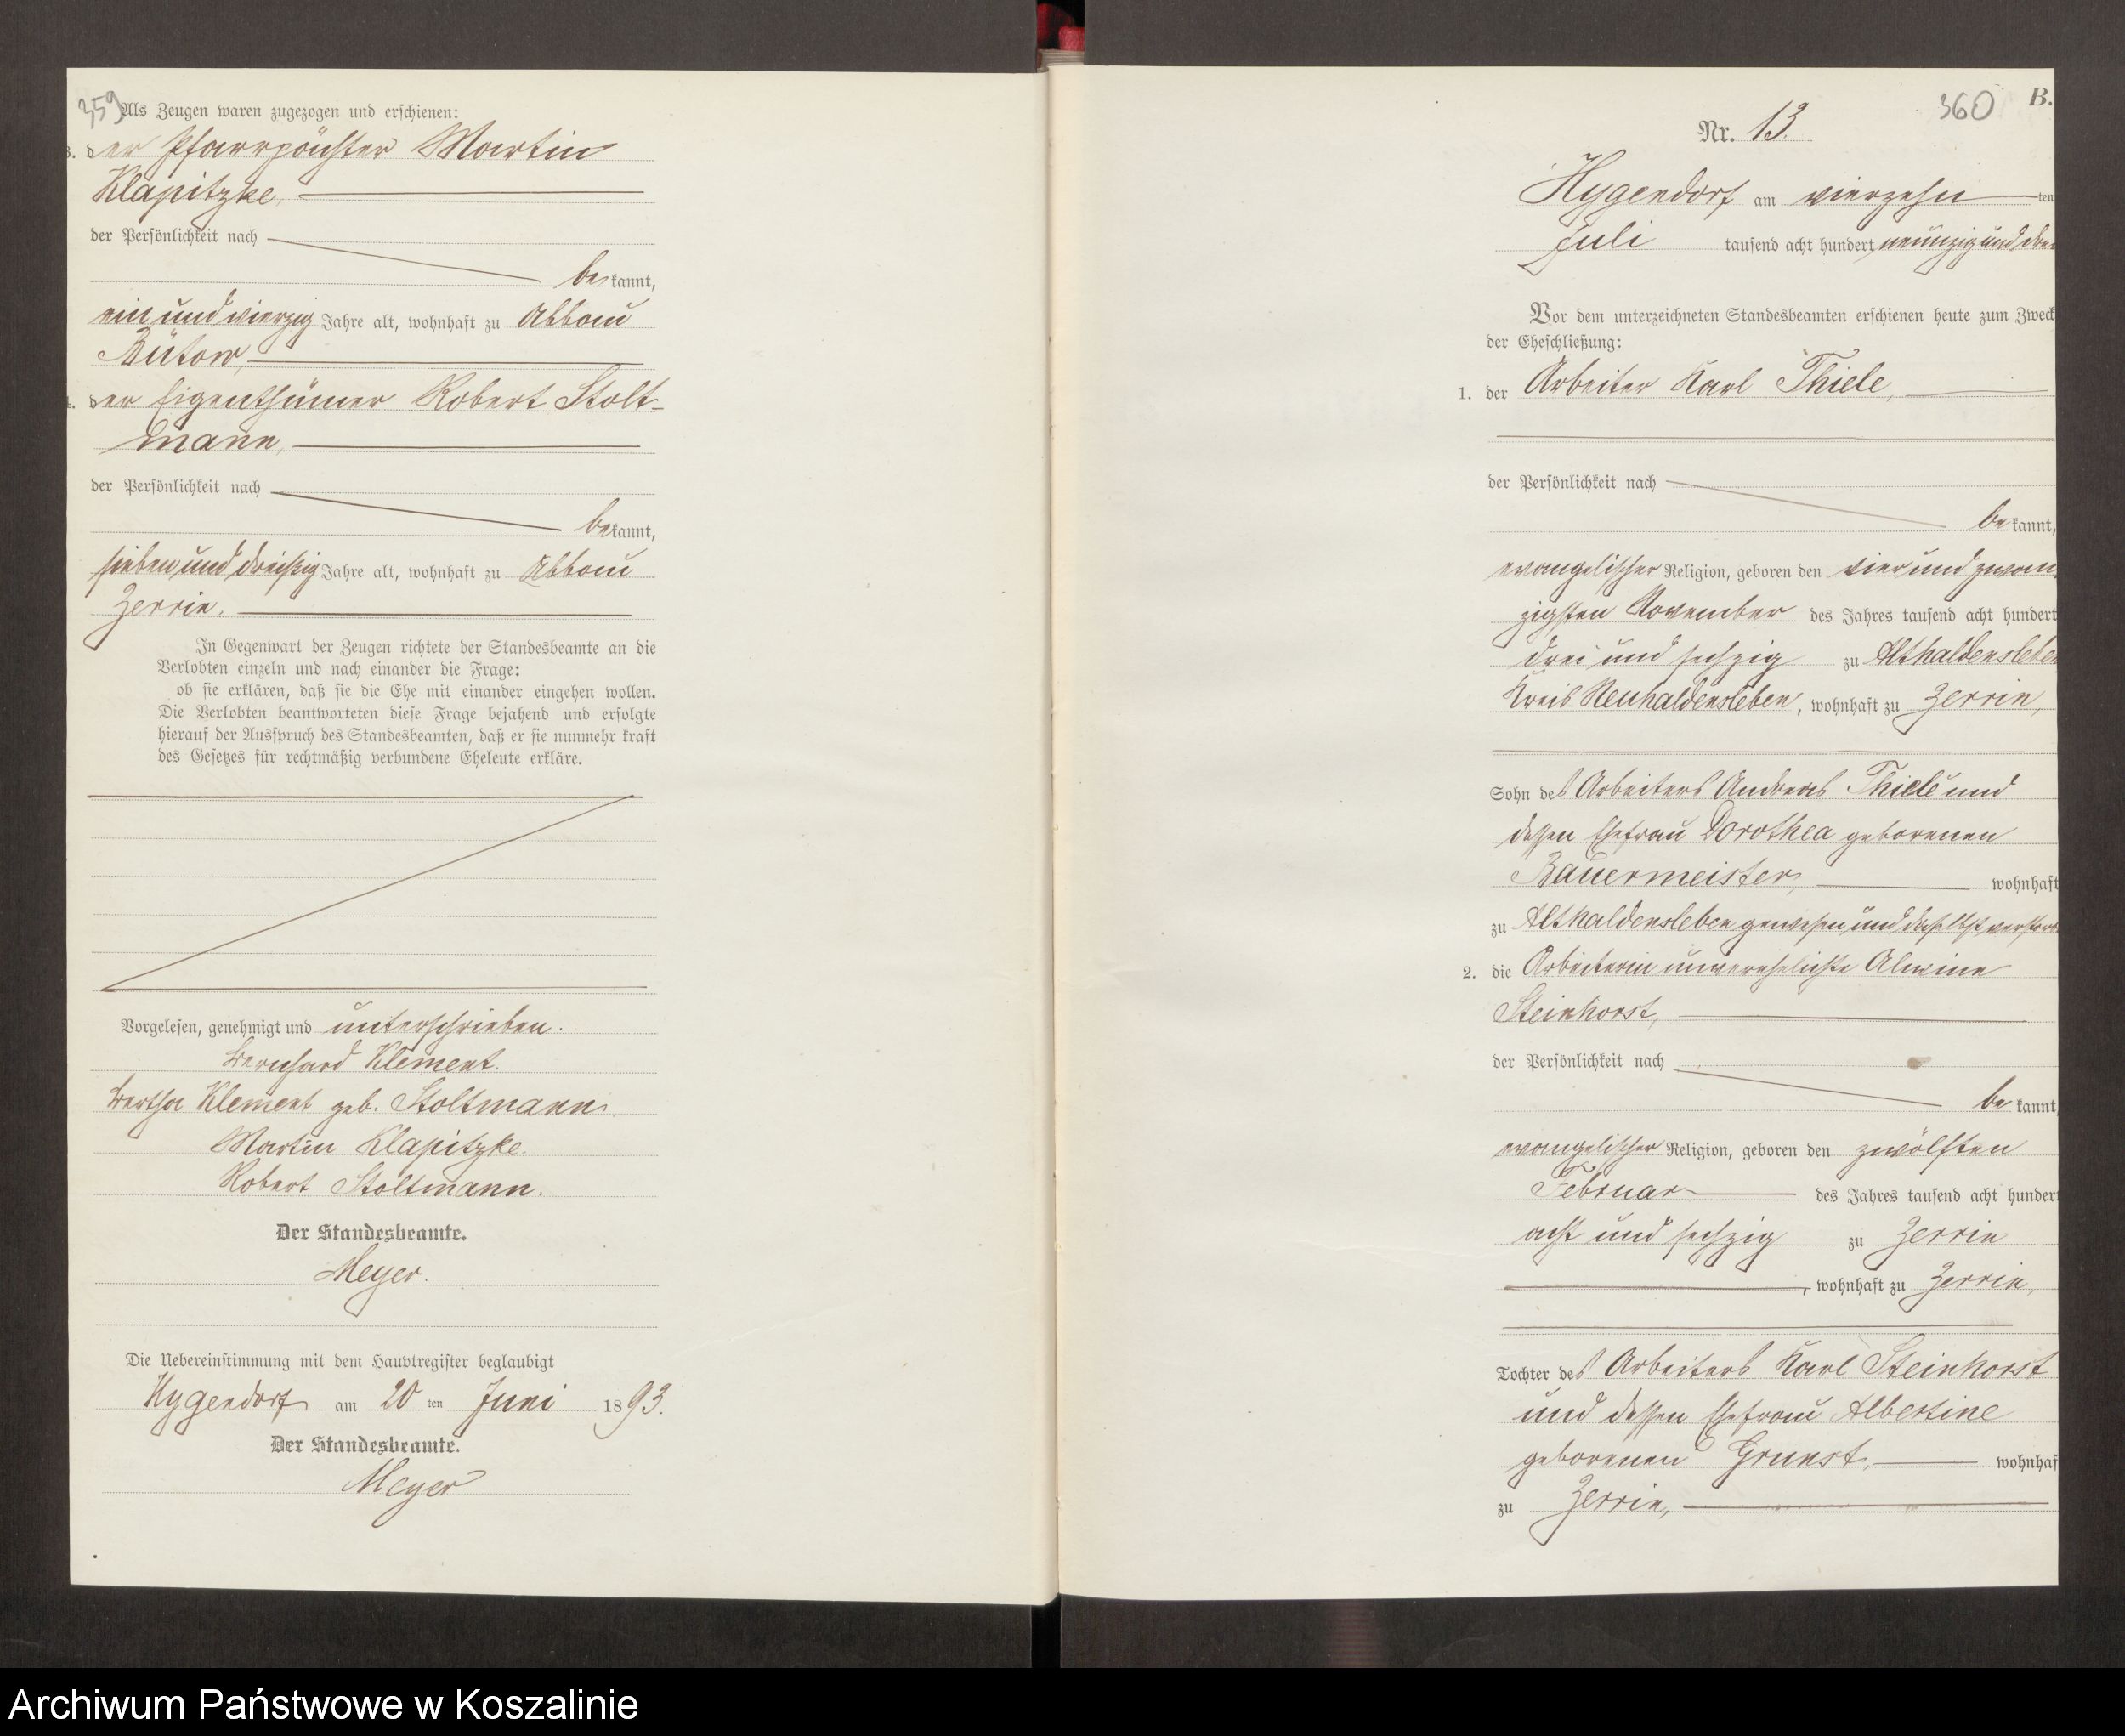 359
Als Zeugen waren zugezogen und erschienen:
3. der Pfarrpächter Martin
Klapitzke,
der Persönlichkeit nach
bekannt,
ein und vierzig Jahre alt, wohnhaft zu Abbau
Bütow,
4. der Eigenthümer Robert Stolt-
mann,
der Persönlichkeit nach
bekannt,
sieben und dreißig Jahre alt, wohnhaft zu Abbau
Zerrin.
In Gegenwart der Zeugen richtete der Standesbeamte an die
Verlobten einzeln und nach einander die Frage:
ob sie erklären, daß sie die Ehe mit einander eingehen wollen.
Die Verlobten beantworteten diese Frage bejahend und erfolgte
hierauf der Ausspruch des Standesbeamten, daß er sie nunmehr kraft
des Gesetzes für rechtmäßig verbundene Eheleute erkläre.
Vorgelesen, genehmigt und unterschrieben.
Bernhard Klement.
Bertha Klement geb. Stoltmann.
Martin Klapitzke.
Robert Stoltmann.
Der Standesbeamte.
Meyer.
Die Uebereinstimmung mit dem Hauptregister beglaubigt
Hygendorf am 20 ten Juni 1893.
Der Standesbeamte.
Meyer
360
B.
Nr. 13.
Hygendorf am vierzehn ten
Juli tausend acht hundert neunzig und drei
Vor dem unterzeichneten Standesbeamten erschienen heute zum Zweck
der Eheschließung:
1. der Arbeiter Karl Thiele,
der Persönlichkeit nach
bekannt,
evangelischer Religion, geboren den vier und zwan
zigsten November des Jahres tausend acht hundert
drei und sechzig zu Althaldensleben
Kreis Neuhaldensleben, wohnhaft zu Zerrin,
Sohn des Arbeiters Andreas Thiele und
dessen Ehefrau Dorothea geborenen
Bauermeister, wohnhaft
zu Althaldensleben gewesen und daselbst verstorb
2. die Arbeiterin unverehelichte Alwine
Steinhorst,
der Persönlichkeit nach
bekannt,
evangelischer Religion, geboren den zwölften
Februar des Jahres tausend acht hundert
acht und sechzig zu Zerrin
, wohnhaft zu Zerrin,
Tochter des Arbeiters Karl Steinhorst
und dessen Ehefrau Albertine
geborenen Grunst, wohnhaf
zu Zerrin,
Archiwum Państwowe w Koszalinie